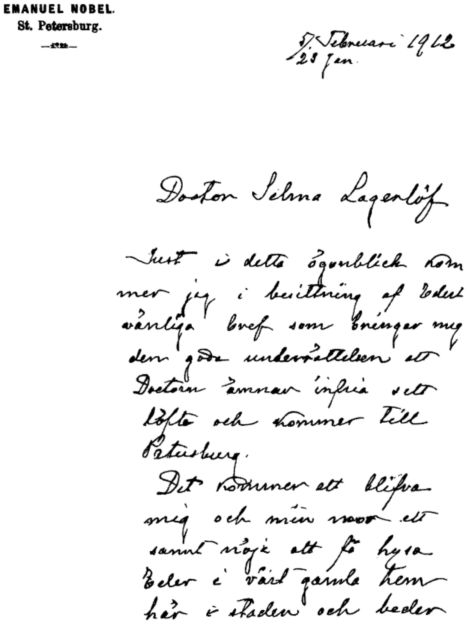 EMANUEL NOBEL.
St. Petersburg.
5/ Februari 1912
23 Jan.
Doctor Selma Lagerlöf
Just i detta ögonblick kom
mer jag i besittning af Edert
vänliga bref som bringar mig
den goda underrättelsen att
Doctorn ämnar infria sett
löfte och kommer till
Petersburg.
Det kommer att blifva
mig och min mor ett
sannt nöje att få hysa
Eder i vårt gamla hem
här i staden och beder